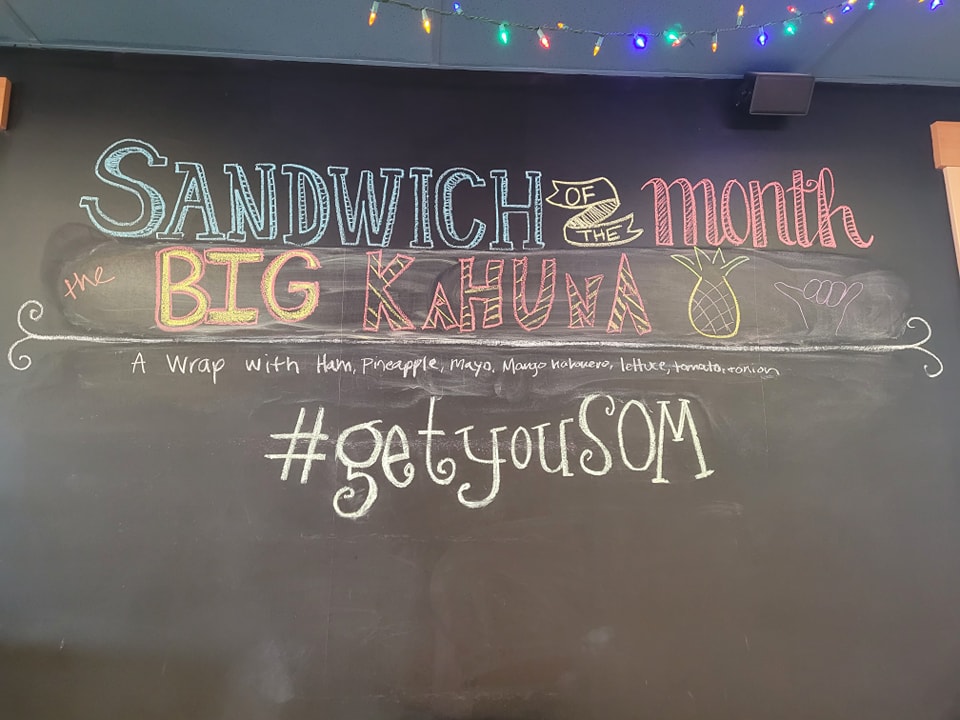 SANDWICH OF THE month
the BIG KAHUNA
A Wrap with Ham, Pineapple, Mayo, Mango habanero, lettuce, tomato, + onion
#getyouSOM